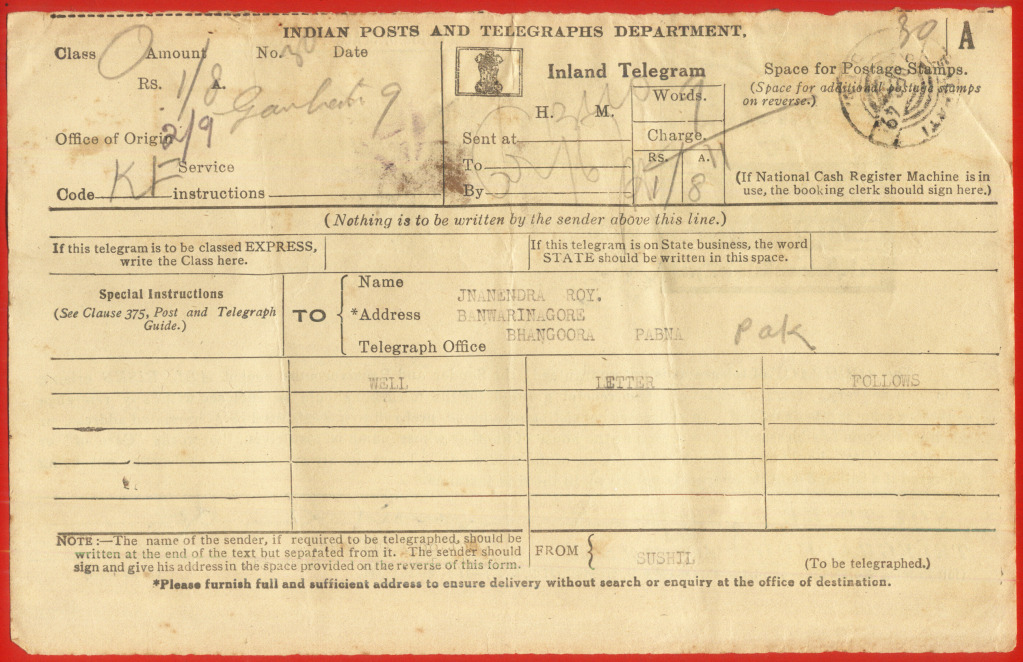 INDIAN POSTS AND TELEGRAPHS DEPARTMENT.
A
30
Class O Amount No. 30 Date
Rs. 1/8 A.
Gauhati 9
Inland Telegram
H. M.
Words.
Space for Postage Stamps.
(Space for additional postage stamps
on reverse.)
Office of Origin 2/9
Sent at
Charge.
Service
To
Rs. A.
1/8
Code KF instructions
By
(If National Cash Register Machine is in
use, the booking clerk should sign here.)
(Nothing is to be written by the sender above this line.)
If this telegram is to be classed EXPRESS,
write the Class here.
If this telegram is on State business, the word
STATE should be written in this space.
Special Instructions
(See Clause 375, Post and Telegraph
Guide.)
TO
Name JNANENDRA ROY.
*Address BANWARINAGORE
BHANGOORA PABNA Pak
Telegraph Office
WELL LETTER FOLLOWS
NOTE:—The name of the sender, if required to be telegraphed, should be
written at the end of the text but separated from it. The sender should
sign and give his address in the space provided on the reverse of this form.
FROM SUSHIL (To be telegraphed.)
*Please furnish full and sufficient address to ensure delivery without search or enquiry at the office of destination.